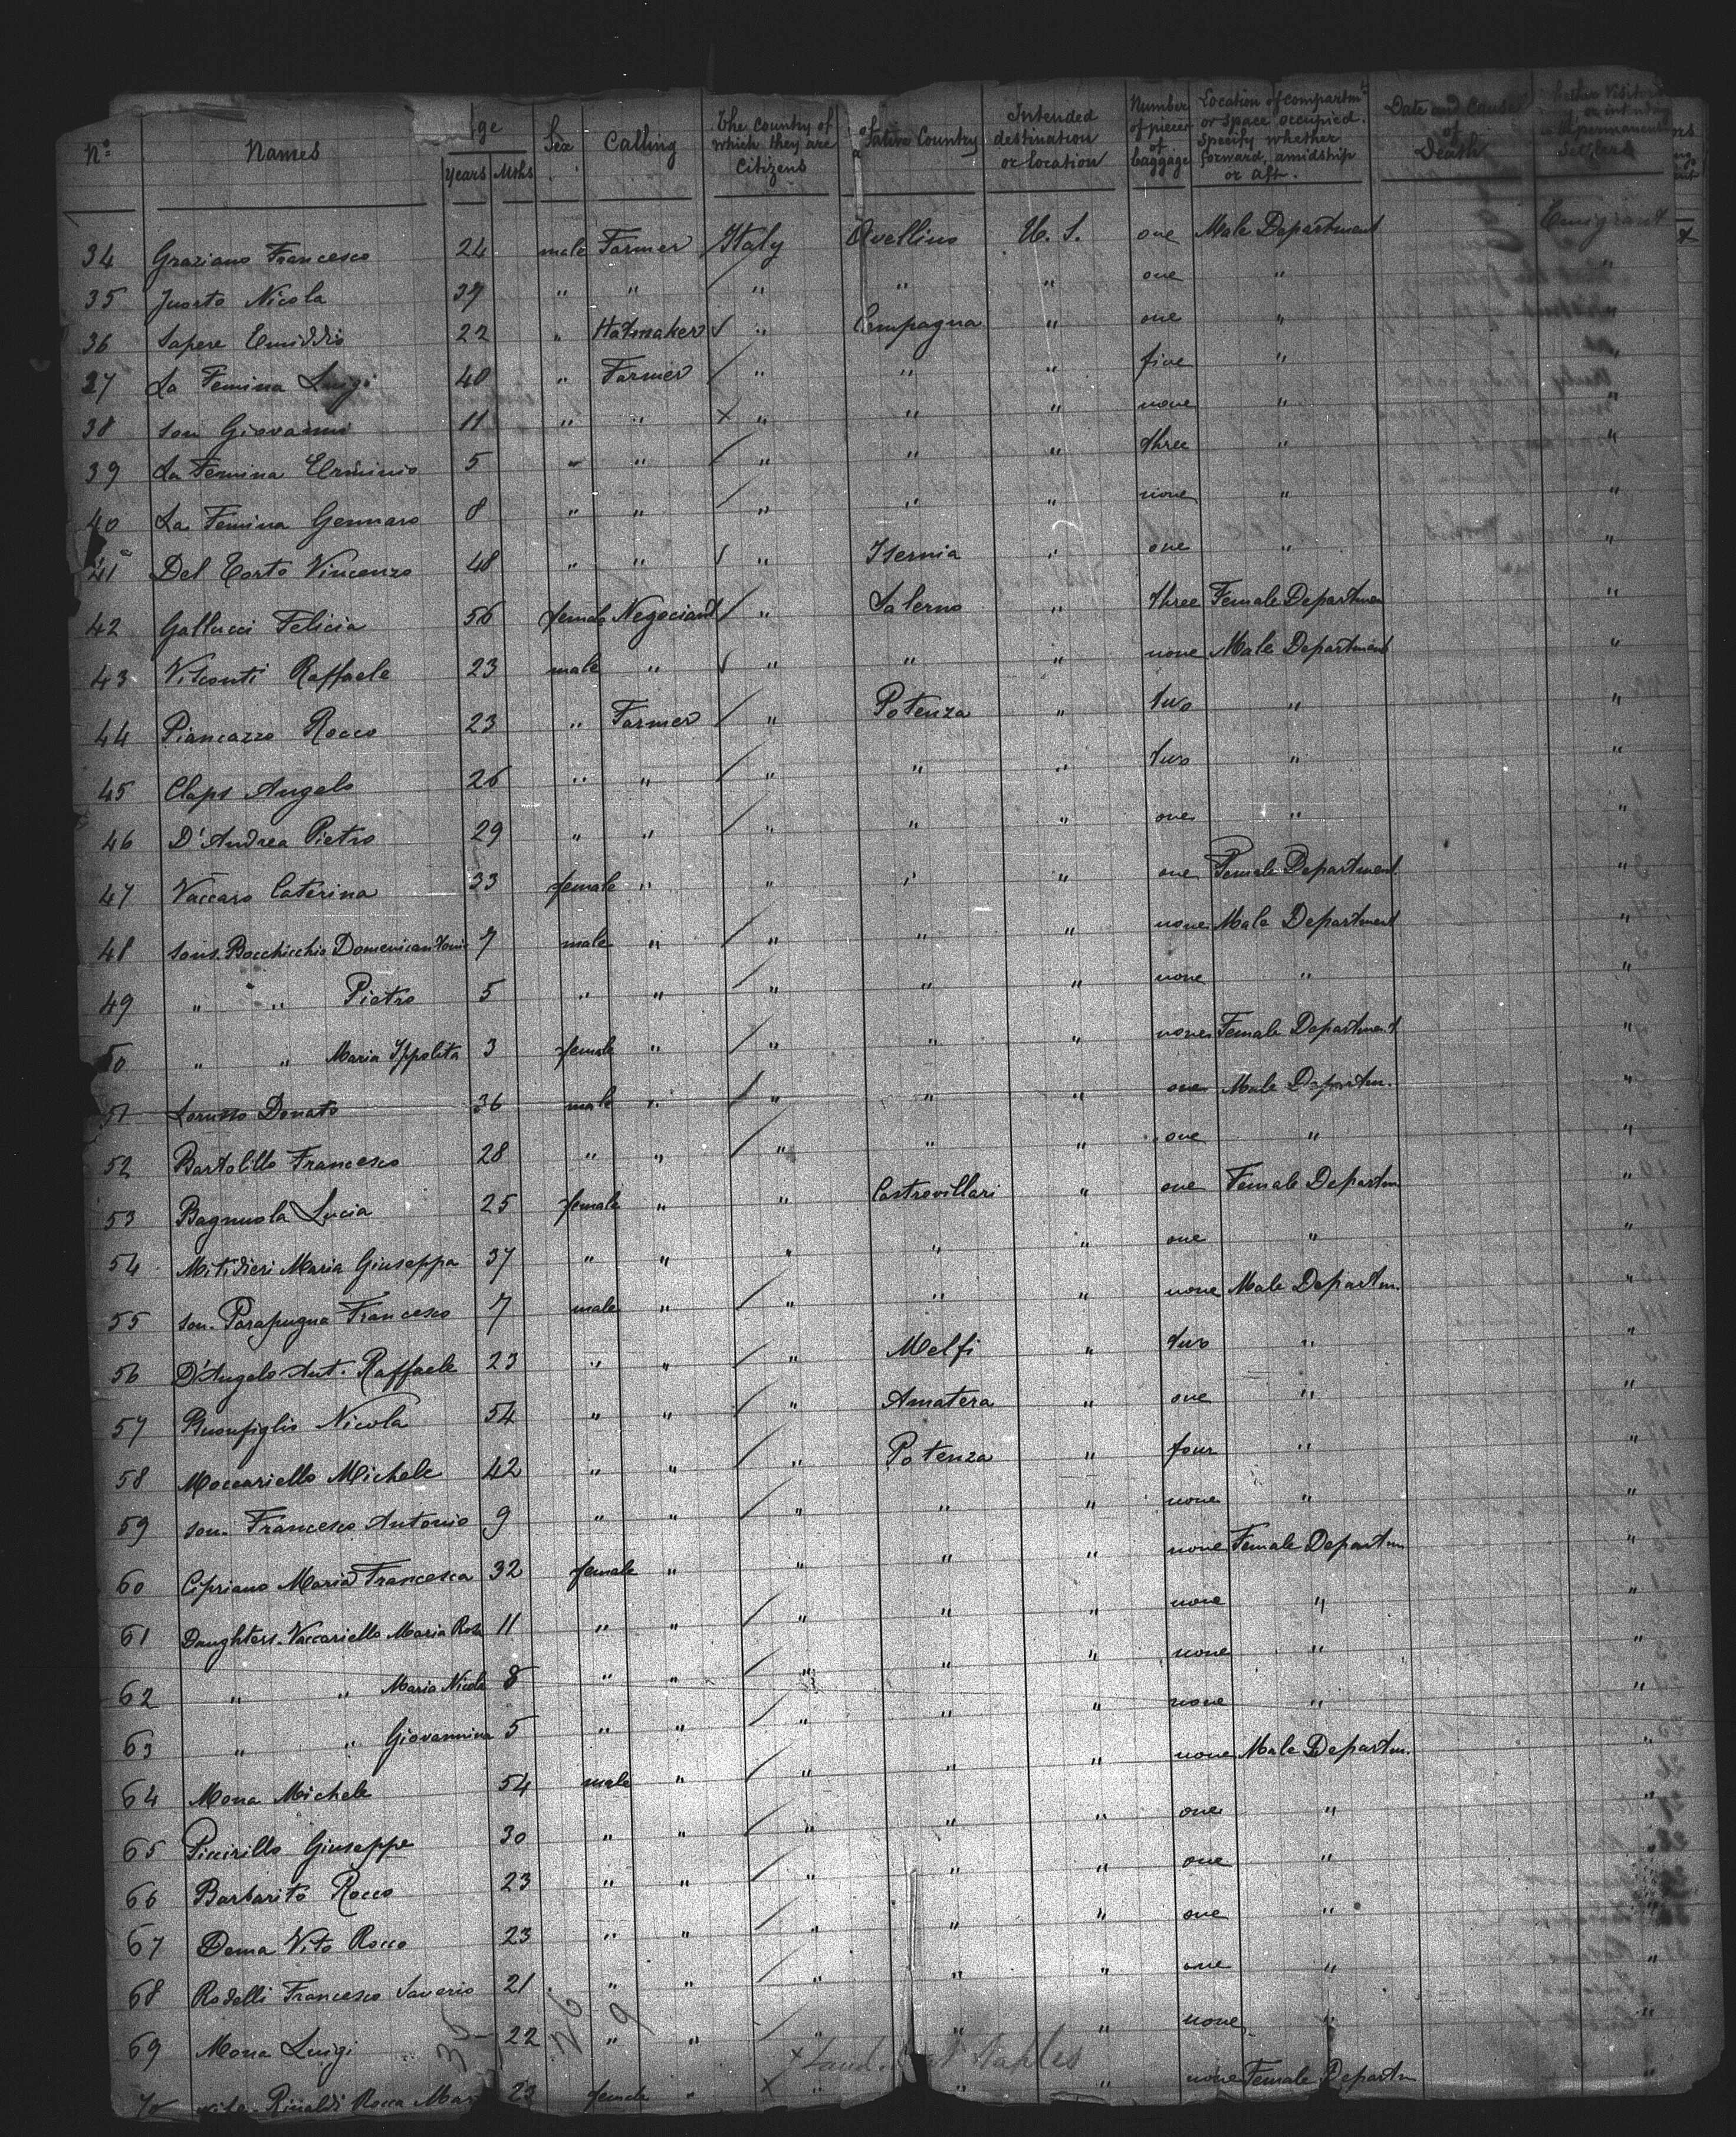 No. Names Age Years Mths Sex Calling The Country of which they are Citizens Native Country Intended destination or location Number of pieces of baggage Location of compartmt or space occupied. Specify whether forward, amidship or aft. Date and Cause of Death
34 Graziano Francesco 24 male Farmer Italy Avellino U. S. one Male Department Emigrant
35 Juorto Nicola 39 " " " " " one " "
36 Sapere Emiddio 22 " Hatmaker " Campagna " one " "
37 La Femina Luigi 40 " Farmer " " " five " "
38 son Giovanni 11 " " " " " none " "
39 La Femina Erminio 5 " " " " " three " "
40 La Femina Gennaro 8 " " " " " none " "
41 Del Corto Vincenzo 48 " " " Isernia " one " "
42 Gallucci Felicia 56 female Negociant " Salerno " three Female Departmen "
43 Visconti Raffaele 23 male " " " " none Male Department "
44 Piancazzo Rocco 23 " Farmer " Potenza " two " "
45 Claps Angelo 26 " " " " " two " "
46 D'Andrea Pietro 29 " " " " " one " "
47 Vaccaro Caterina 33 female " " " " one Female Department "
48 sons. Bocchicchio Domenicantonio 7 male " " " " none Male Department "
49 " " Pietro 5 " " " " " none " "
50 " " Maria Ippolita 3 female " " " " none Female Department "
51 Lorusso Donato 36 male " " " " one Male Departm. "
52 Bartolillo Francesco 28 " " " " " one " "
53 Bagnuola Lucia 25 female " " Castrovillari " one Female Departm "
54 Mitidieri Maria Giuseppa 37 " " " " " one " "
55 son. Parapugna Francesco 7 male " " " " none Male Departm. "
56 D'Angelo Ant. Raffaele 23 " " " Melfi " two " "
57 Buonfiglio Nicola 54 " " " Amatera " one " "
58 Moccariello Michele 42 " " " Potenza " four " "
59 son. Francesco Antonio 9 " " " " " none " "
60 Cipriano Maria Francesca 32 female " " " " none Female Departm "
61 Daughters. Vaccariello Maria Rosa 11 " " " " " none " "
62 " " Maria Nicola 8 " " " " " none " "
63 " " Giovannina 5 " " " " " none " "
64 Mona Michele 54 male " " " none Male Departm. "
65 Piccirillo Giuseppe 30 " " " " " one " "
66 Barbarito Rocco 23 " " " " " one "
67 Dema Vito Rocco 23 " " " " " one "
68 Rodelli Francesco Saverio 21 " " " " " one " "
69 Mona Luigi 22 " " " " " none " "
70 wife. Rinaldi Rocca Mar 23 female " " " " none Female Departm "
Naples